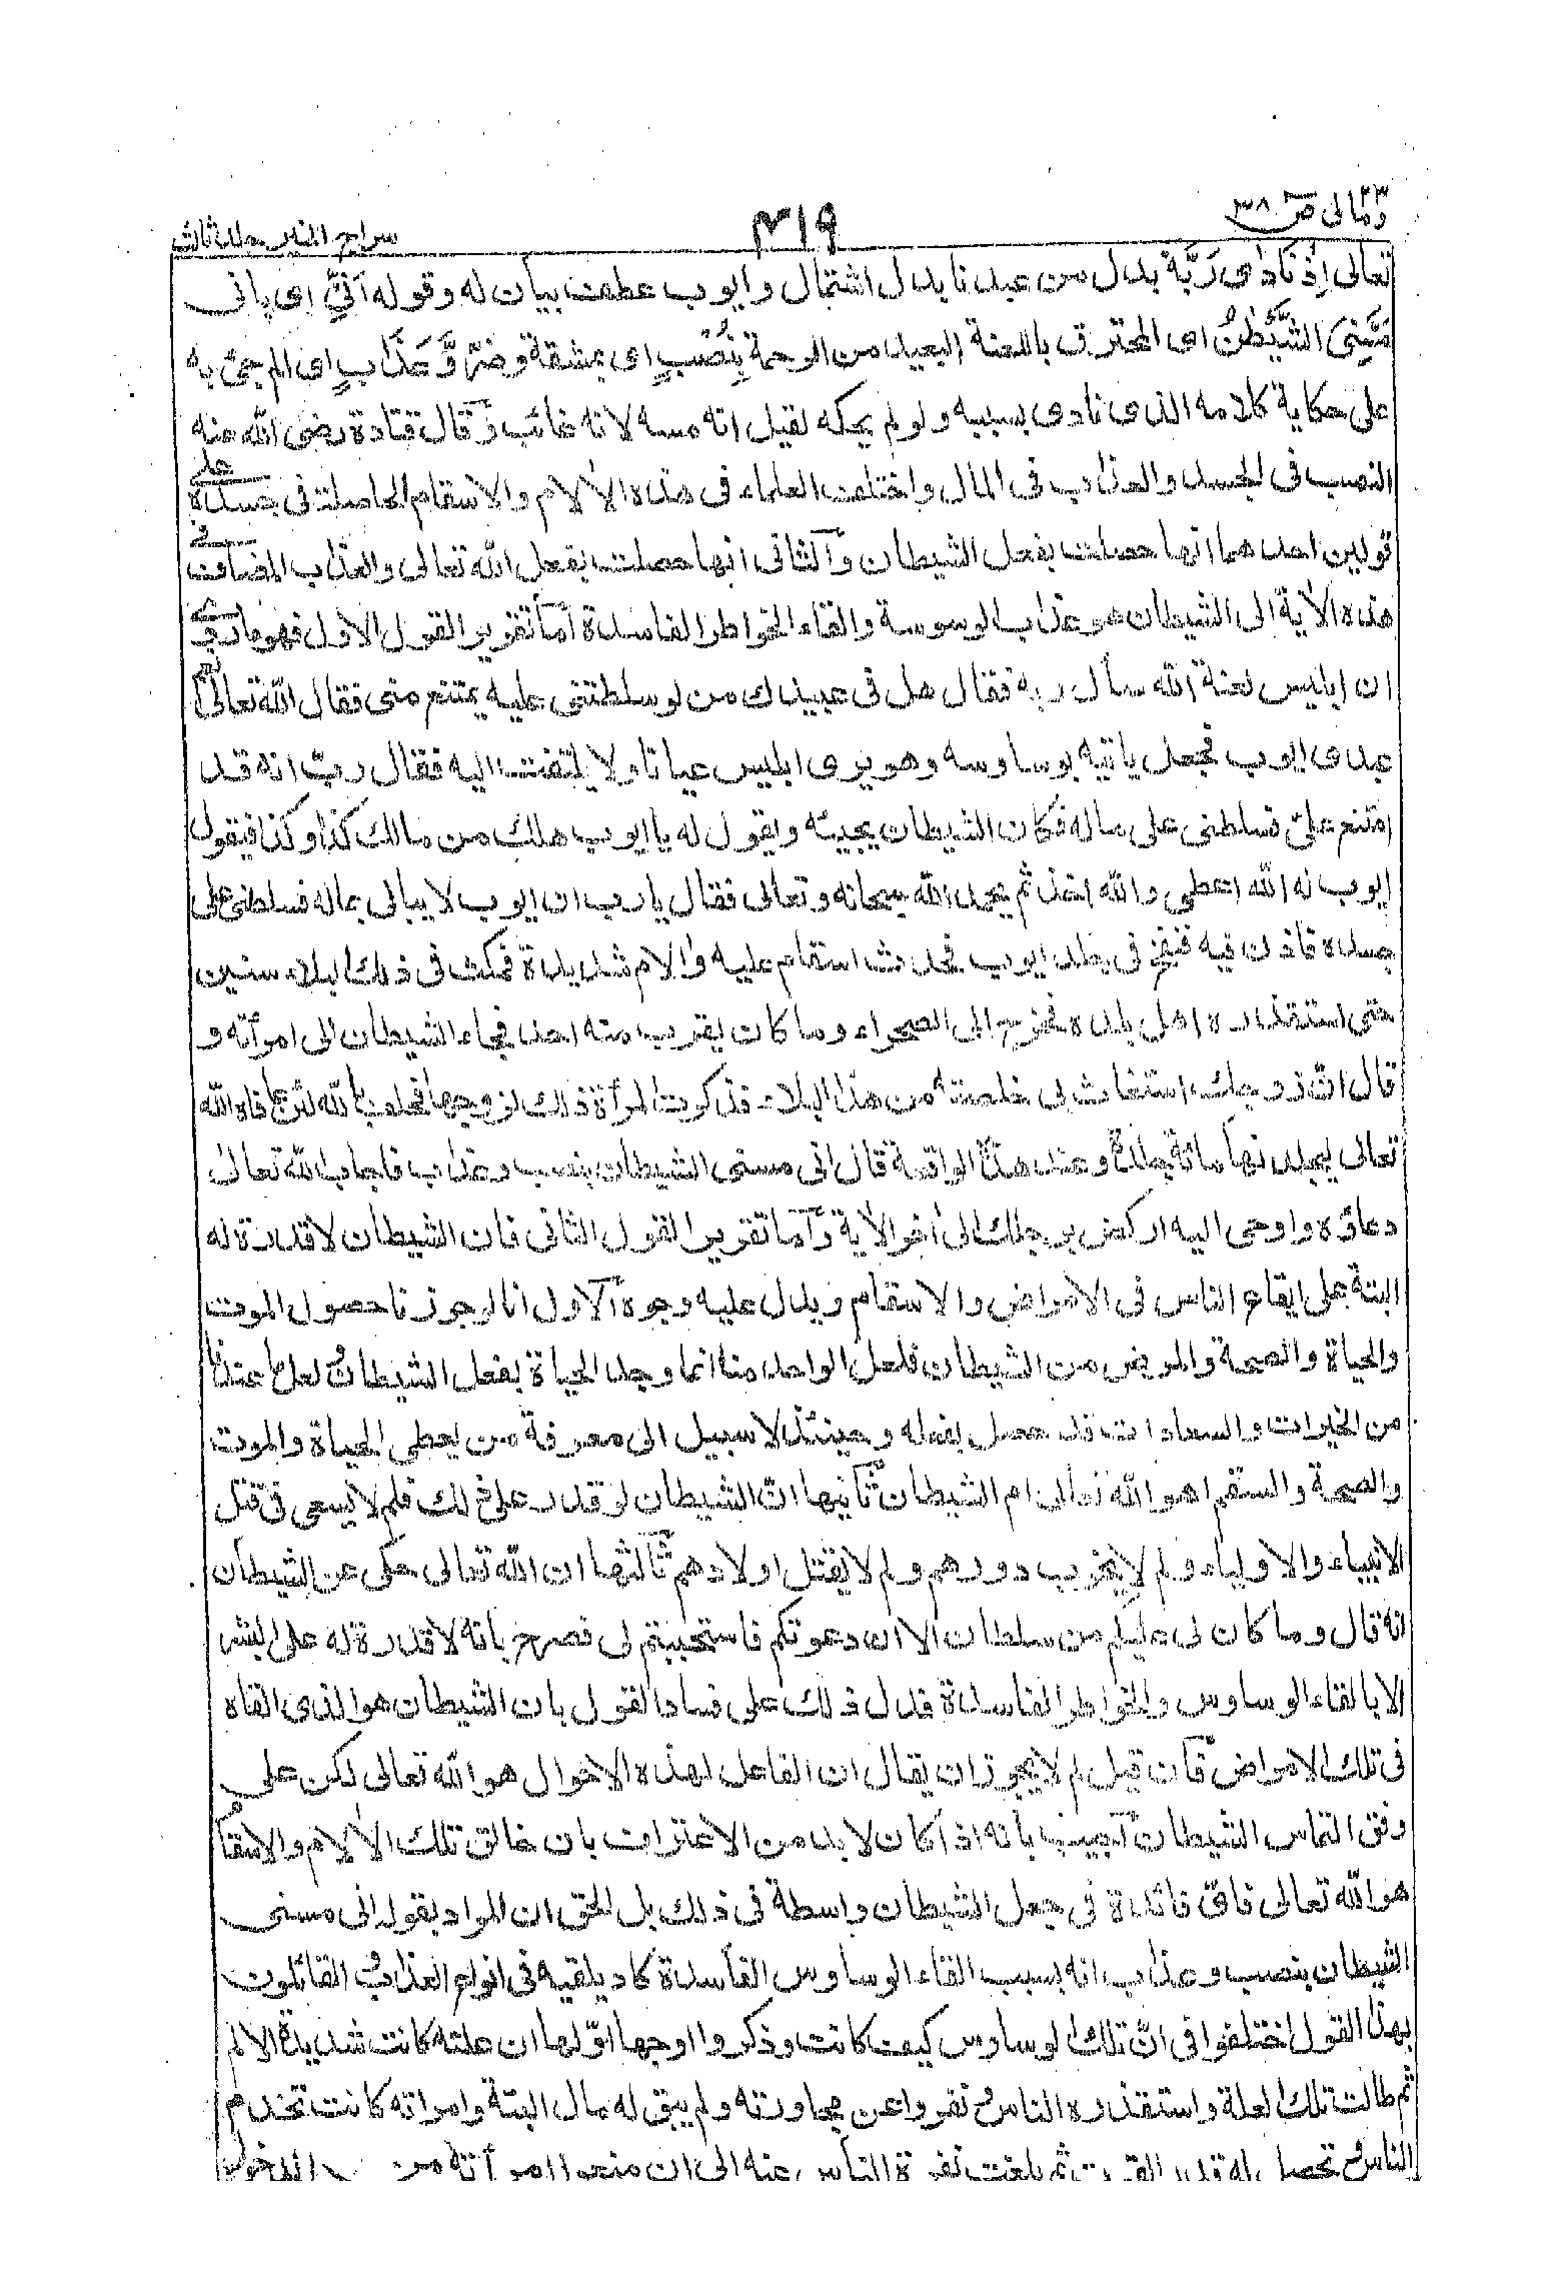 ومالی ٢٣ ص ٣٨
٤١٩
سراج المنير جلد ثالث
تعالى اِذْ نَادٰى رَبَّهٗ بدل من عبدنا بدل اشتمال وايوب عطف بيان له وقوله اَنِّيْ اى بانى
مَسَّنِيَ الشَّيْطٰنُ اى المحترق باللعنة البعيد من الرحمة بِنُصْبٍ اى بمشقة وضرّ وَّعَذَابٍ اى الم جئ به
على حكاية كلامه الذى نادى بسببه ولو لم يحكه لقيل انه مسه لانه غائب وقال قتادة رضى الله عنه
النصب فى الجسد والعذاب فى المال واختلف العلماء فى هذه الاٰلام والاسقام الحاصلة فى جسده على
قولين احدهما انها حصلت بفعل الشيطان والثانى انها حصلت بفعل الله تعالى والعذاب المضاف فى
هذه الاٰية الى الشيطان هو عذاب الوسوسة والقاء الخواطر الفاسدة اما تقرير القول الاول فهو ما روى
ان ابليس لعنة الله سأل ربه فقال هل فى عبيدك من لو سلطتنى عليه يمتنع منى فقال الله تعالى نعم
عبدى ايوب فجعل ياتيه بوساوسه وهو يرى ابليس عيانا ولا يلتفت اليه فقال ربّ انه قد
امتنع علىّ فسلطنى على ماله فكان الشيطان يجيئه ويقول له يا ايوب هلك من مالك كذا وكذا فيقول
ايوب له الله اعطى والله اخذ ثم يحمد الله سبحانه وتعالى فقال يا رب ان ايوب لا يبالى بماله فسلطنى على
جسده فاذن فيه فنفخ فى جلد ايوب فحدث اسقام عليه واٰلام شديدة فمكث فى ذلك البلاء سنين
حتى استقذره اهل بلده فخرج الى الصحراء وما كان يقرب منه احد فجاء الشيطان الى امرأته و
قال انّ زوجك استغاث بى خلصته من هذا البلاء فذكرت المرأة ذلك لزوجها فحلف بالله لئن عافاه الله
تعالى ليجلدنها مائة جلدة وعند هذه الواقعة قال انى مسنى الشيطان بنصب وعذاب فاجاب الله تعالى
دعاؤه واوحى اليه اركض برجلك الى اٰخر الاٰية واما تقرير القول الثانى فان الشيطان لا قدرة له
البتة على ايقاع الناس فى الامراض والاسقام ويدل عليه وجوه الاول انا لو جوزنا حصول الموت
والحياة والصحة والمرض من الشيطان فلعل الواحد منا انما وجد الحياة بفعل الشيطان ولعل ما عندنا
من الخيرات والسعادات قد حصل بفعله وحينئذ لا سبيل الى معرفة من يعطى الحياة والموت
والصحة والسقم اهو الله تعالى ام الشيطان ثانيها انّ الشيطان لو قدر على ذلك فلم لا يسعى فى قتل
الانبياء والاولياء ولم لا يخرب دورهم ولم لا يقتل اولادهم ثالثها ان الله تعالى حكى عن الشيطان
انه قال وما كان لى عليكم من سلطان الا ان دعوتكم فاستجبتم لى فصرح بانه لا قدرة له على البشر
الا بالقاء الوساوس والخواطر الفاسدة فدل ذلك على فساد القول بان الشيطان هو الذى القاه
فى تلك الامراض فان قيل لم لا يجوز ان يقال ان الفاعل لهذه الاحوال هو الله تعالى لكن على
وفق التماس الشيطان اجيب بانه اذا كان لا بد من الاعتراف بان خالق تلك الاٰلام والاسقام
هو الله تعالى فاىّ فائدة فى جعل الشيطان واسطة فى ذلك بل الحق ان المراد بقوله انى مسنى
الشيطان بنصب وعذاب انه بسبب القاء الوساوس الفاسدة كاد يلقيه فى انواع العذاب و القائلون
بهذا القول اختلفوا فى انّ تلك الوساوس كيف كانت وذكروا اوجها اوّلها ان علته كانت شديدة الالم
ثم طالت تلك العلة واستقذره الناس و نفروا عن مجاورته ولم يبق له مال البتة وامراته كانت تخدم
الناس و تحصل له قدر القوت ثم بلغت نفرة الناس عنه الى ان منعوا امرأته من الدخول